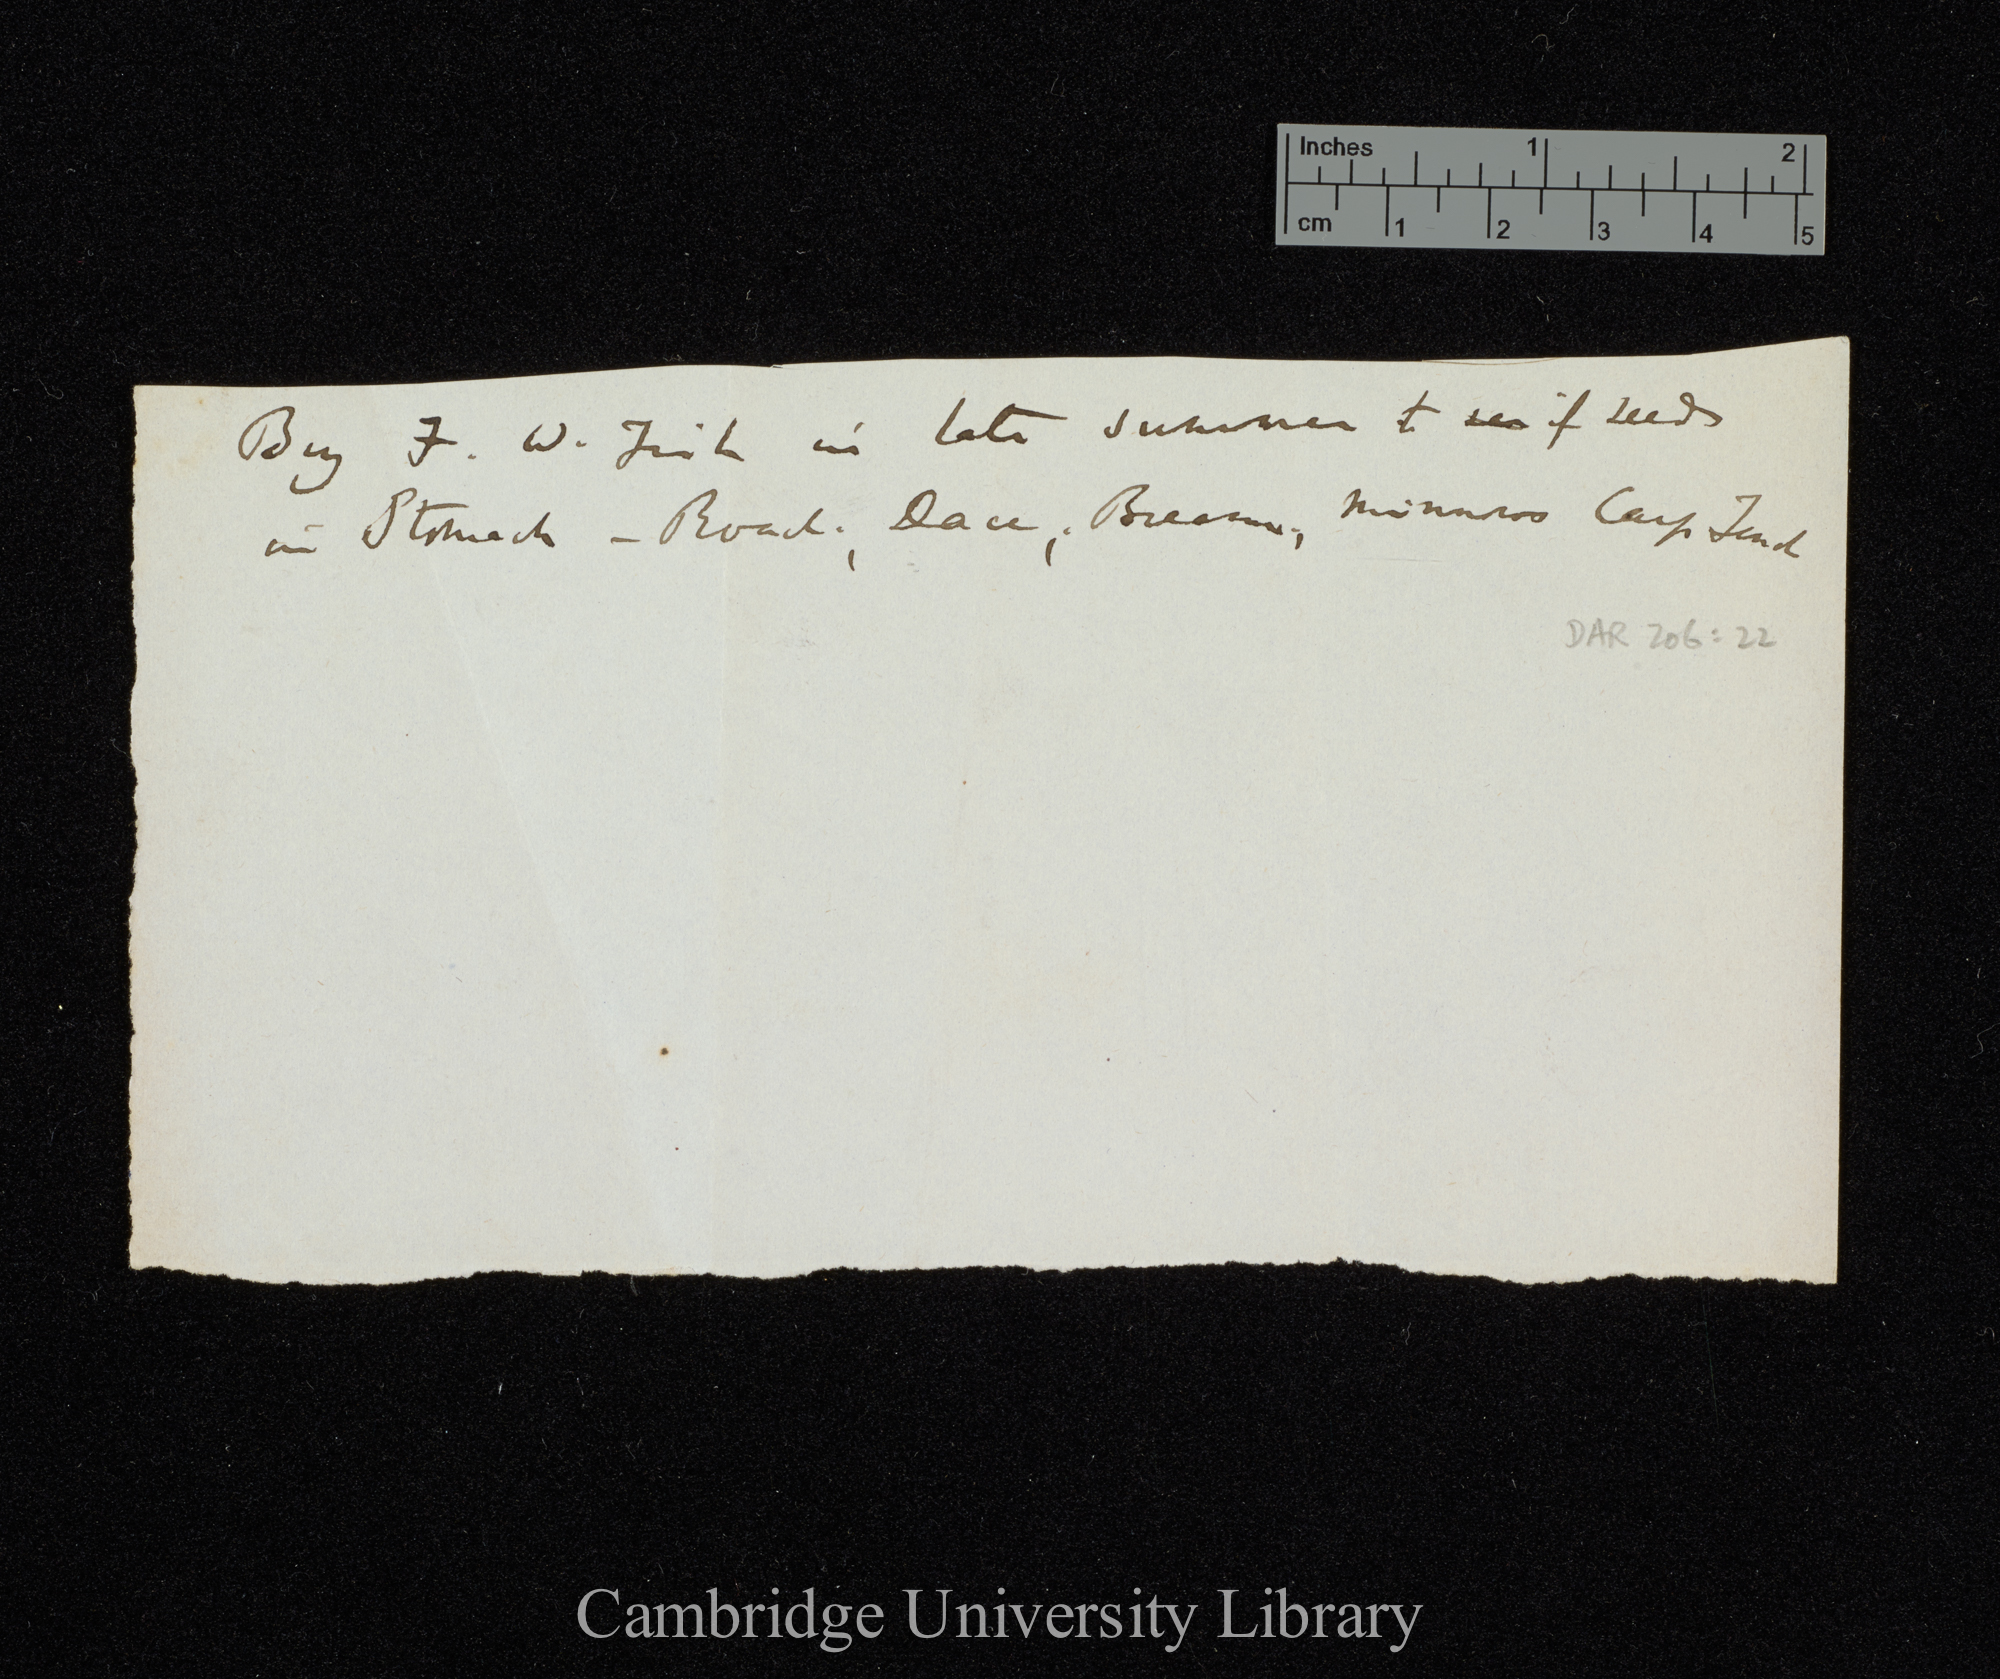 Inches 1 2
cm 1 2 3 4 5
Buy F. W. Fish in late summer to see if seeds
in Stomach – Roach; Dace; Bream; Minnows Carp Tench
DAR 206:22
Cambridge University Library